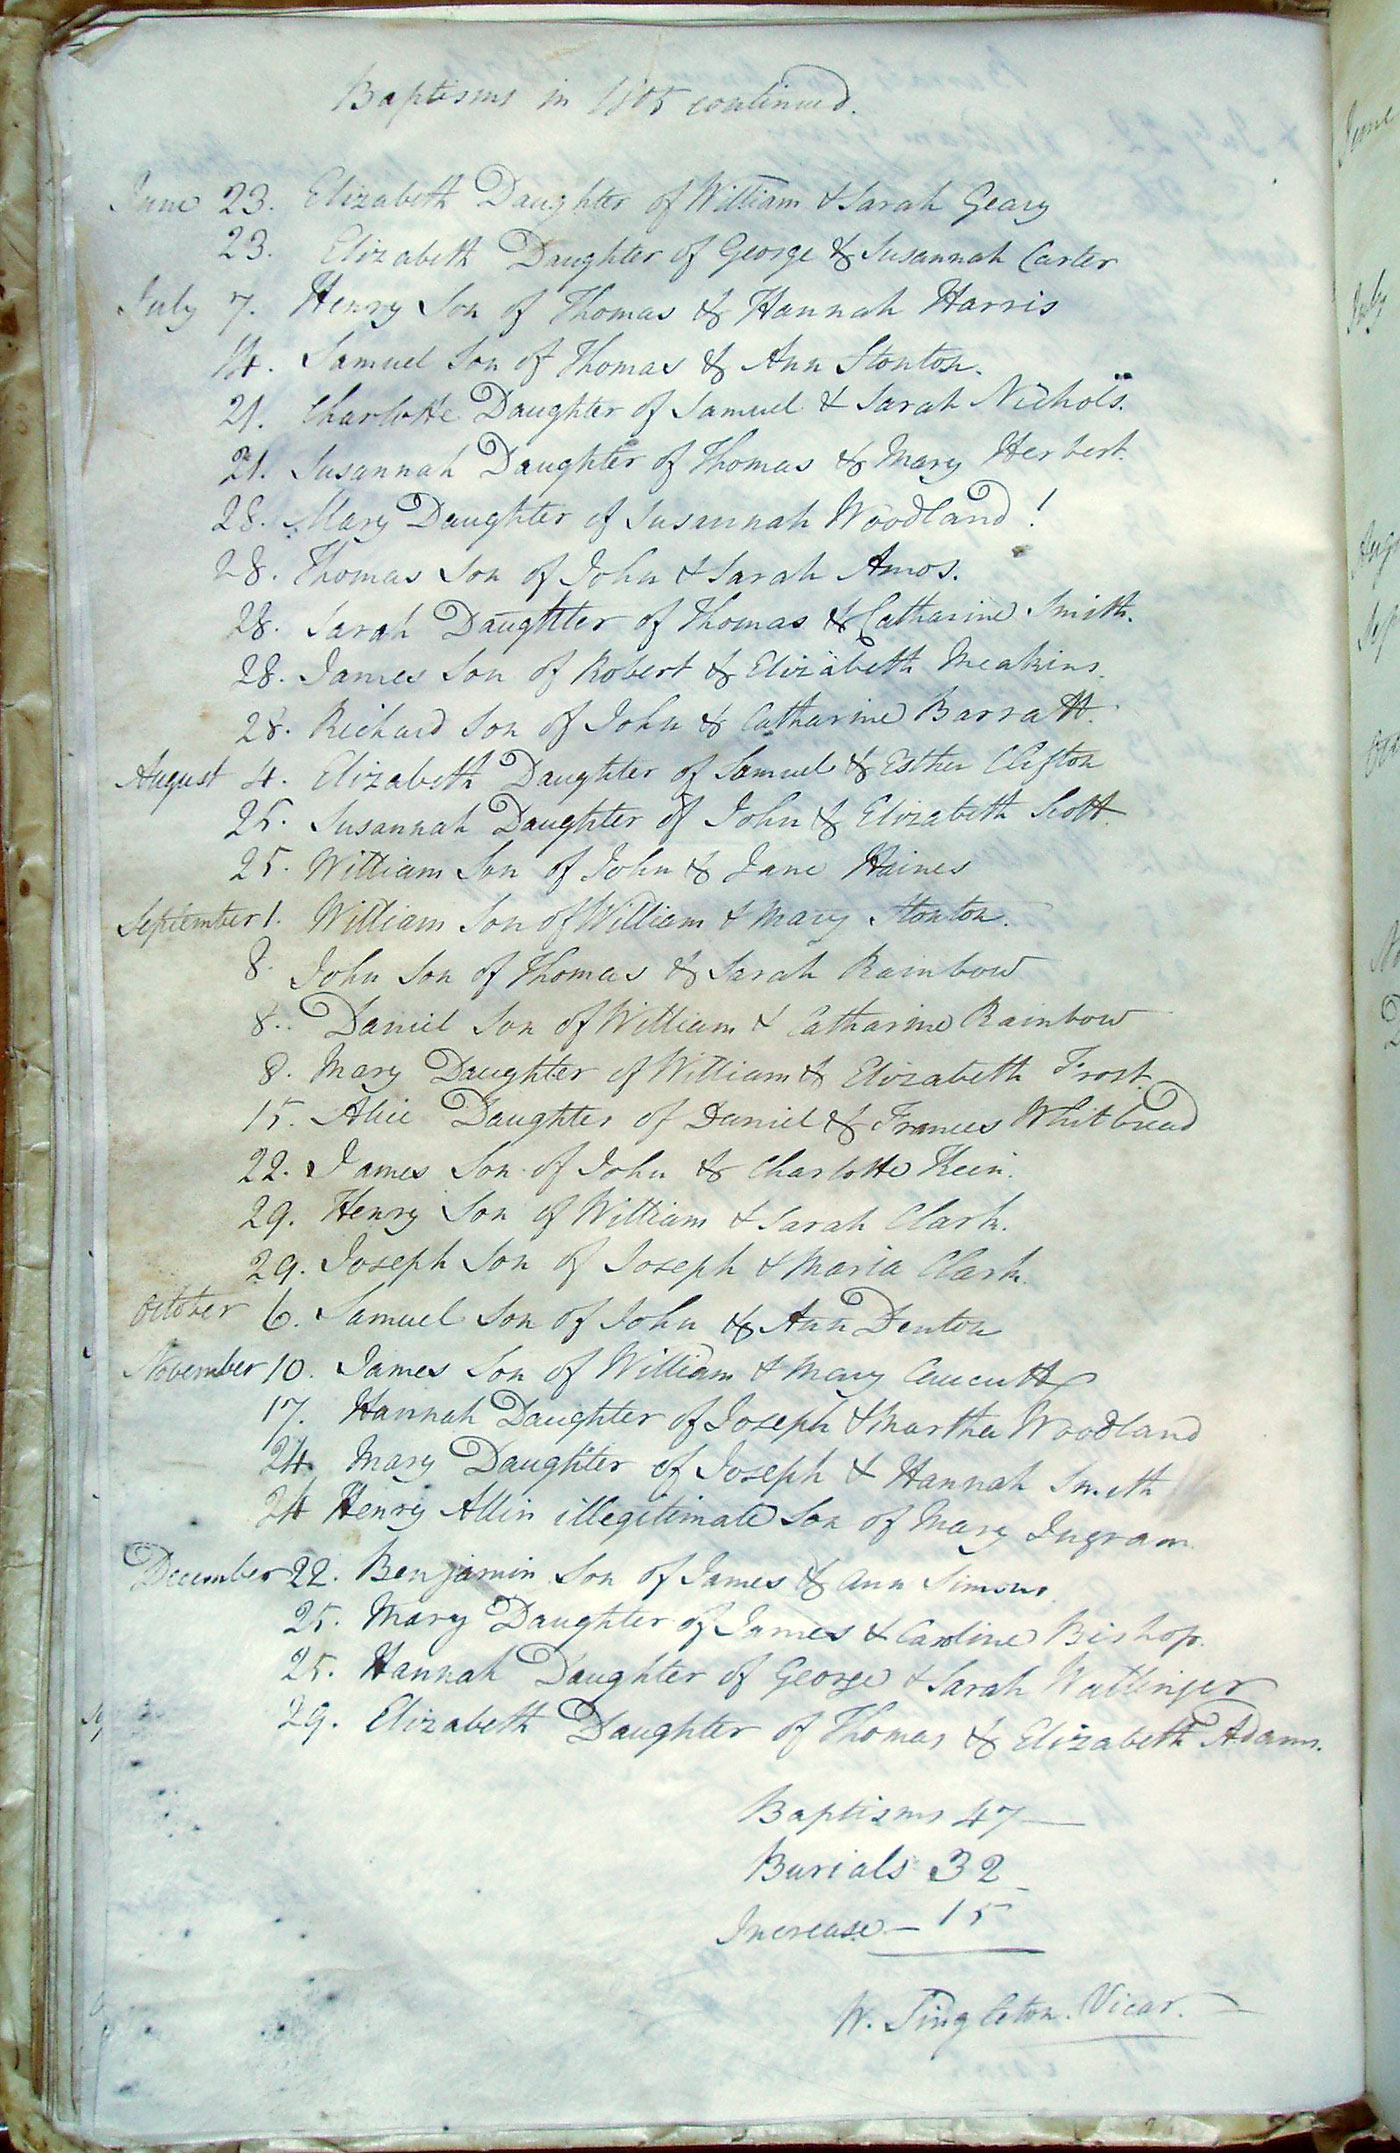 Baptisms in 1805 continued.
June 23. Elizabeth Daughter of William & Sarah Geary
23. Elizabeth Daughter of George & Susannah Carter
July 7. Henry Son of Thomas & Hannah Harris
14. Samuel Son of Thomas & Ann Stonton.
21. Charlotte Daughter of Samuel & Sarah Nichols.
21. Susannah Daughter of Thomas & Mary Herbert.
28. Mary Daughter of Susannah Woodland !
28. Thomas Son of John & Sarah Amos.
28. Sarah Daughter of Thomas & Catharine Smith.
28. James Son of Robert & Elizabeth Meakins.
28. Richard Son of John & Catharine Barratt.
August 4. Elizabeth Daughter of Samuel & Esther Clifton
25. Susannah Daughter of John & Elizabeth Scott
25. William Son of John & Jane Haines
September 1. William Son of William & Mary Stonton.
8. John Son of Thomas & Sarah Rainbow
8. Daniel Son of William & Catharine Rainbow
8. Mary Daughter of William & Elizabeth Frost.
15. Alice Daughter of Daniel & Frances Whitbread
22. James Son of John & Charlotte
29. Henry Son of William & Sarah Clark.
29. Joseph Son of Joseph & Maria Clark.
October 6. Samuel Son of John & Ann Denton
November 10. James Son of William & Mary Caucutt
17. Hannah Daughter of Joseph & Martha Woodland
24. Mary Daughter of Joseph & Hannah Smith
24 Henry Allin illegitimate Son of Mary Ingram
December 22. Benjamin Son of James & Ann Simons.
25. Mary Daughter of James & Caroline Bishop.
25. Hannah Daughter of George & Sarah Wallinger
29. Elizabeth Daughter of Thomas & Elizabeth Adams.
Baptisms 47
Burials 32
Increase — 15
W. Singleton. Vicar.
June
July